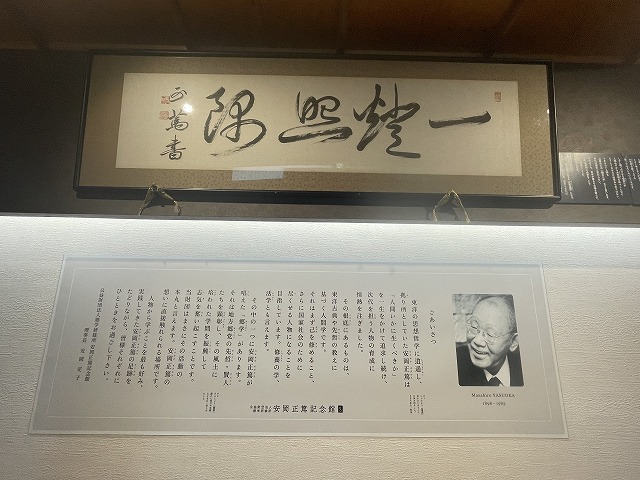 一燈照隅
正篤書
ごあいさつ
東洋の思想哲学に透過し、
拠り所として、安岡正篤は
「人間いかに生くべきか」
を一生をかけて追求し続け、
次代を担う人物の育成に
情熱を注ぎました。
その根底にあるものは、
東洋古典や先哲の教えに
基づく人間学です。
それはまず己を修めること、
さらに国家社会のために
尽くせる人物になることを
目指しています。修養の学、
活学とも言えます。
その中の一つに安岡正篤が
唱えた「郷学」があります。
それは地方郷党の先哲・賢人
たちを顕彰し、その風土に
培われた学問を振興して
志気を奮い起こすことです。
当財団はまさにその活動の
本丸と言えます。安岡正篤の
想いに直接触れられる場所です。
人物から学ぶことを最も好み、
実践してきた安岡正篤の足跡を
たどりながら、皆様それぞれに
ひとときをお過ごし下さい。
公益財団法人郷学研修所・安岡正篤記念館
理事長 安岡定子
Masahiro YASUOKA
1898 - 1983
安岡正篤記念館